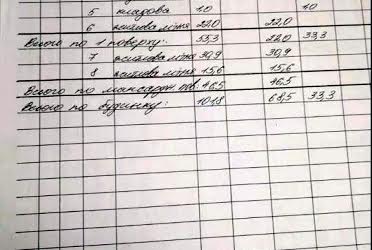 5 кладова 1.0 1.0
6 житлова кімн 22,0 22,0
Всього по 1 поверху: 55.3 22,0 33,3
7 житлова кімн 30,9 30,9
8 житлова кімн 15,6 15,6
Всього по мансардн пов: 46,5 46,5
Всього по будинку: 101,8 68,5 33,3